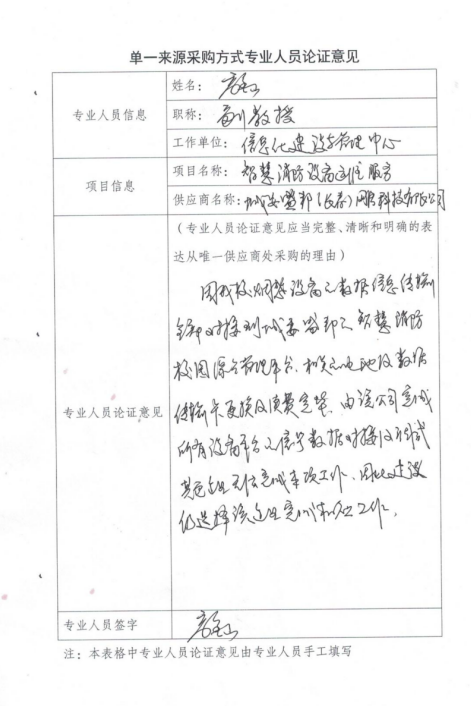 单一来源采购方式专业人员论证意见
专业人员信息
姓名：
职称：副教授
工作单位：信息化建设与管理中心
项目信息
项目名称：智慧消防设备运维服务
供应商名称：城安盟邦（北京）网络科技有限公司
专业人员论证意见
（专业人员论证意见应当完整、清晰和明确的表
达从唯一供应商处采购的理由）
因我校烟感设备之数据信息传输
全部对接到城安盟邦之智慧消防
校园综合管理平台、相关之电池及数据
传输卡更换及续费定等，由该公司完成
所有设备平台之信号数据对接及调试
其他公司无法完成本项工作、因此建议
仍选择该公司完成相应工作。
专业人员签字
注：本表格中专业人员论证意见由专业人员手工填写